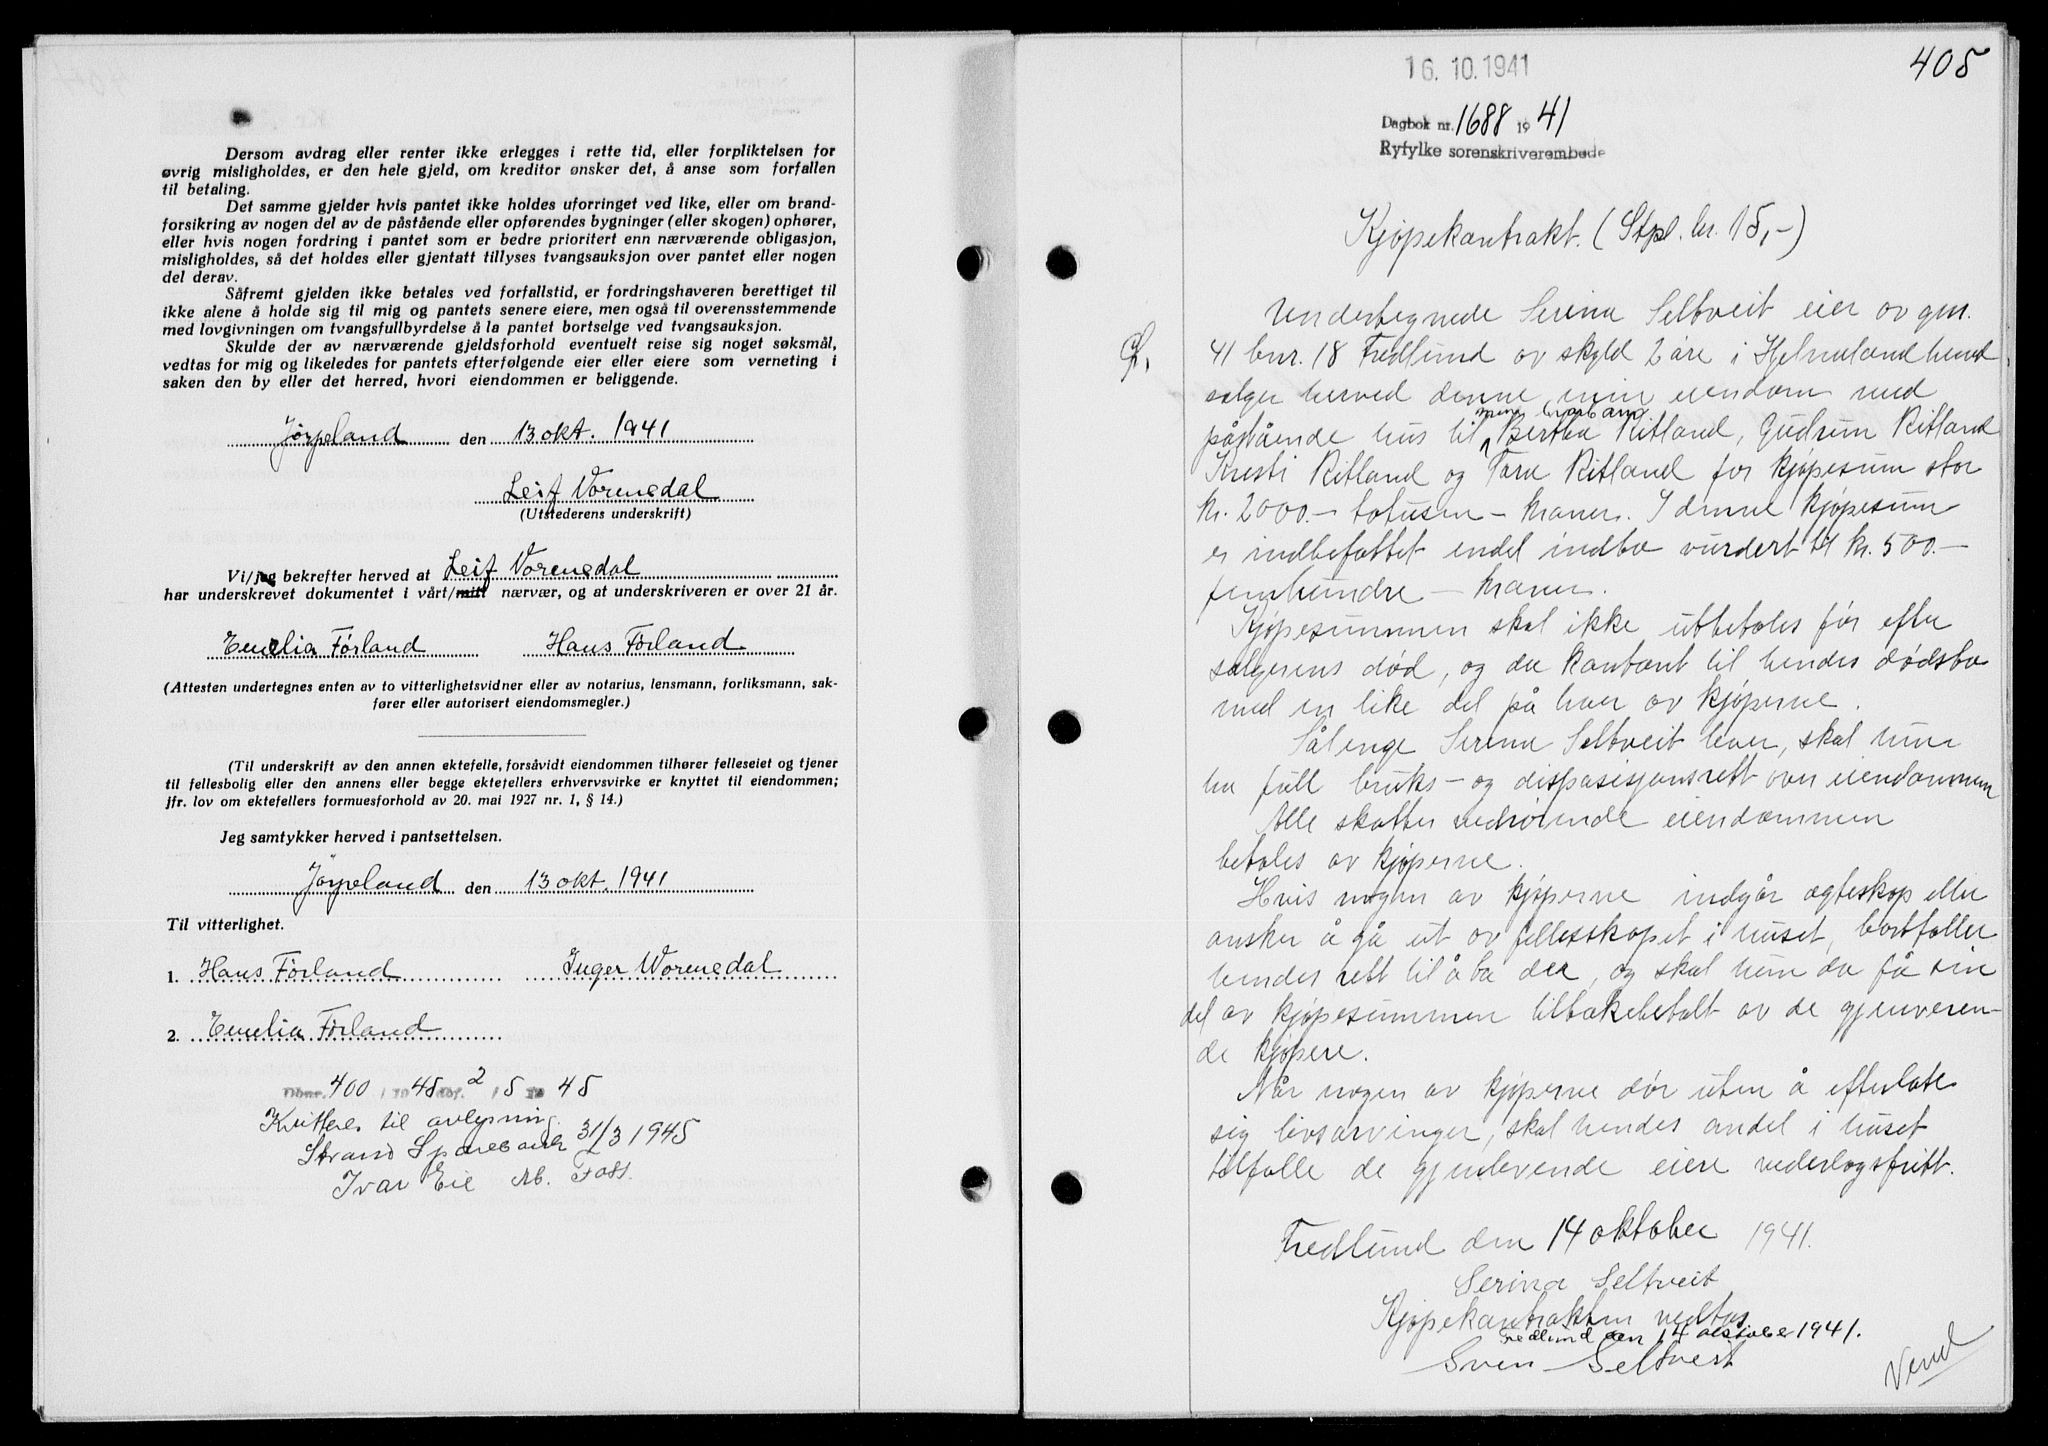 Dersom avdrag eller renter ikke erlegges i rette tid, eller forpliktelsen for
øvrig misligholdes, er den hele gjeld, om kreditor ønsker det, å anse som forfallen
til betaling.
Det samme gjelder hvis pantet ikke holdes uforringet ved like, eller om brand-
forsikring av nogen del av de påstående eller opførendes bygninger (eller skogen) ophører,
eller hvis nogen fordring i pantet som er bedre prioritert enn nærværende obligasjon,
misligholdes, så det holdes eller gjentatt tillyses tvangsauksjon over pantet eller nogen
del derav.
Såfremt gjelden ikke betales ved forfallstid, er fordringshaveren berettiget til
ikke alene å holde sig til mig og pantets senere eiere, men også til overensstemmende
med lovgivningen om tvangsfullbyrdelse å la pantet bortselge ved tvangsauksjon.
Skulde der av nærværende gjeldsforhold eventuelt reise sig noget søksmål,
vedtas for mig og likeledes for pantets efterfølgende eier eller eiere som verneting i
saken den by eller det herred, hvori eiendommen er beliggende.
Jørpeland den 13 okt. 1941
Leif Vorenedal
(Utstederens underskrift)
Vi/jeg bekrefter herved at Leif Vorenedal
har underskrevet dokumentet i vårt/mitt nærvær, og at underskriveren er over 21 år.
Emelia Førland Hans Førland
(Attesten undertegnes enten av to vitterlighetsvidner eller av notarius, lensmann, forliksmann, sak-
fører eller autorisert eiendomsmegler.)
(Til underskrift av den annen ektefelle, forsåvidt eiendommen tilhører felleseiet og tjener
til fellesbolig eller den annens eller begge ektefellers erhvervsvirke er knyttet til eiendommen;
jfr. lov om ektefellers formuesforhold av 20. mai 1927 nr. 1, § 14.)
Jeg samtykker herved i pantsettelsen.
Jørpeland den 13 okt. 1941
Til vitterlighet.
1. Hans Førland Inger Vorenedal
2. Emelia Førland
Dbnr. 400 / 1945 Dbf. 2/5 1945
Kvitteres til avlysning
Strand Sparebank 31/3 1945
Ivar Eie M. Foss.
405
16.10.1941
Dagbok nr. 1688 1941
Ryfylke sorenskriverembede
Kjøpekontrakt. (Stpl. kr. 15,-)
Undertegnede Serina Seltveit eier av gnr.
41 bnr. 18 Fredlund av skyld 2 øre i Hjelmeland herred
selger herved denne min eiendom med
påstående hus til mine brorbarn Bertha Ritland, Gudrun Ritland
Kristi Ritland og Tora Ritland for kjøpesum stor
kr. 2000.- totusen - kroner. I denne kjøpesum
er indbefattet endel indbo vurdert til kr. 500.-
femhundre - kroner.
Kjøpesummen skal ikke utbetales før efter
selgerens død, og da kontant til hendes dødsbo
med en like del på hver av kjøperne.
Sålenge Serina Seltveit lever, skal hun
ha full bruks- og disposisjonsrett over eiendommen
Alle skatter vedrørende eiendommen
betales av kjøperne.
Hvis nogen av kjøperne indgår egteskap eller
ønsker å gå ut av fellesskapet i huset, bortfaller
hendes rett til å bo der, og skal hun da få sin
del av kjøpesummen tilbakebetalt av de gjenveren-
de kjøpere.
Når nogen av kjøperne dør uten å efterlate
sig livsarvinger, skal hendes andel i huset
tilfalle de gjenlevende eiere vederlagsfritt.
Fredlund den 14 oktober 1941.
Serina Seltveit
Kjøpekontrakten vedtas
Fredlund den 14 oktober 1941.
Sven Seltveit
Vend